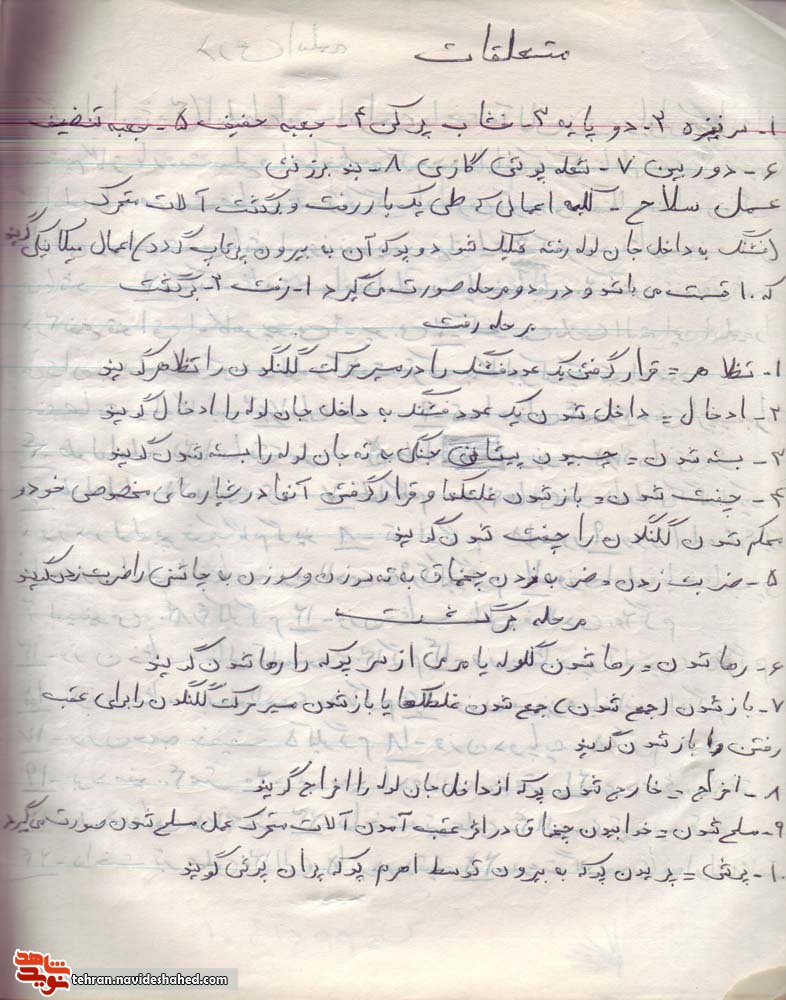 متعلقات
۱- سرنیزه ۲- دو پایه ۳- خشاب پرکن ۴- جعبه حفیف ۵- جعبه تنضیف
۶- دوربین ۷- شعله پوش گازی ۸- بند برزنتی
عمل سلاح - کلیه اعمالی که طی یک بار رفت و برگشت آلات متحرک
(فشنگ به داخل جان لوله رفته شلیک شود و پوکه آن به بیرون پرتاپ گردد) اعمال میکانیکی گویند
که ۱۰ قسمت می باشد و در دو مرحله صورت می گیرد ۱- رفت ۲- برگشت
مرحله رفت
۱- تظاهر = قرار گرفتن یک عدد فشنگ را در مسیر حرکت گلنگدن را تظاهر گویند
۲- ادخال = داخل شدن یک عدد فشنگ به داخل جان لوله را ادخال گویند
۳- بسته شدن = چسبیدن پیشانی جنگی به ته جان لوله را بسته شدن گویند
۴- چفت شدن = باز شدن غلطکها و قرار گرفتن آنها در شیارهای مخصوص خود و
محکم شدن گلنگدن را چفت شدن گویند
۵- ضربت زدن = ضربه زدن چخماق به ته سوزن و سوزن به چاشنی را ضربت زدن گویند
مرحله برگشت
۶- رها شدن = رها شدن گلوله یا مرمی از سر پوکه را رها شدن گویند
۷- باز شدن (جمع شدن) جمع شدن غلطکها یا باز شدن مسیر حرکت گلنگدن را برای عقب
رفتن را باز شدن گویند
۸- اخراج = خارج شدن پوکه از داخل جان لوله را اخراج گویند
۹- مسلح شدن = خوابیدن چخماق در اثر عقب آمدن آلات متحرک عمل مسلح شدن صورت می گیرد
۱۰- پرش = پریدن پوکه به بیرون توسط اهرم پوکه پران پرش گویند
نوید شاهد
tehran.navideshahed.com